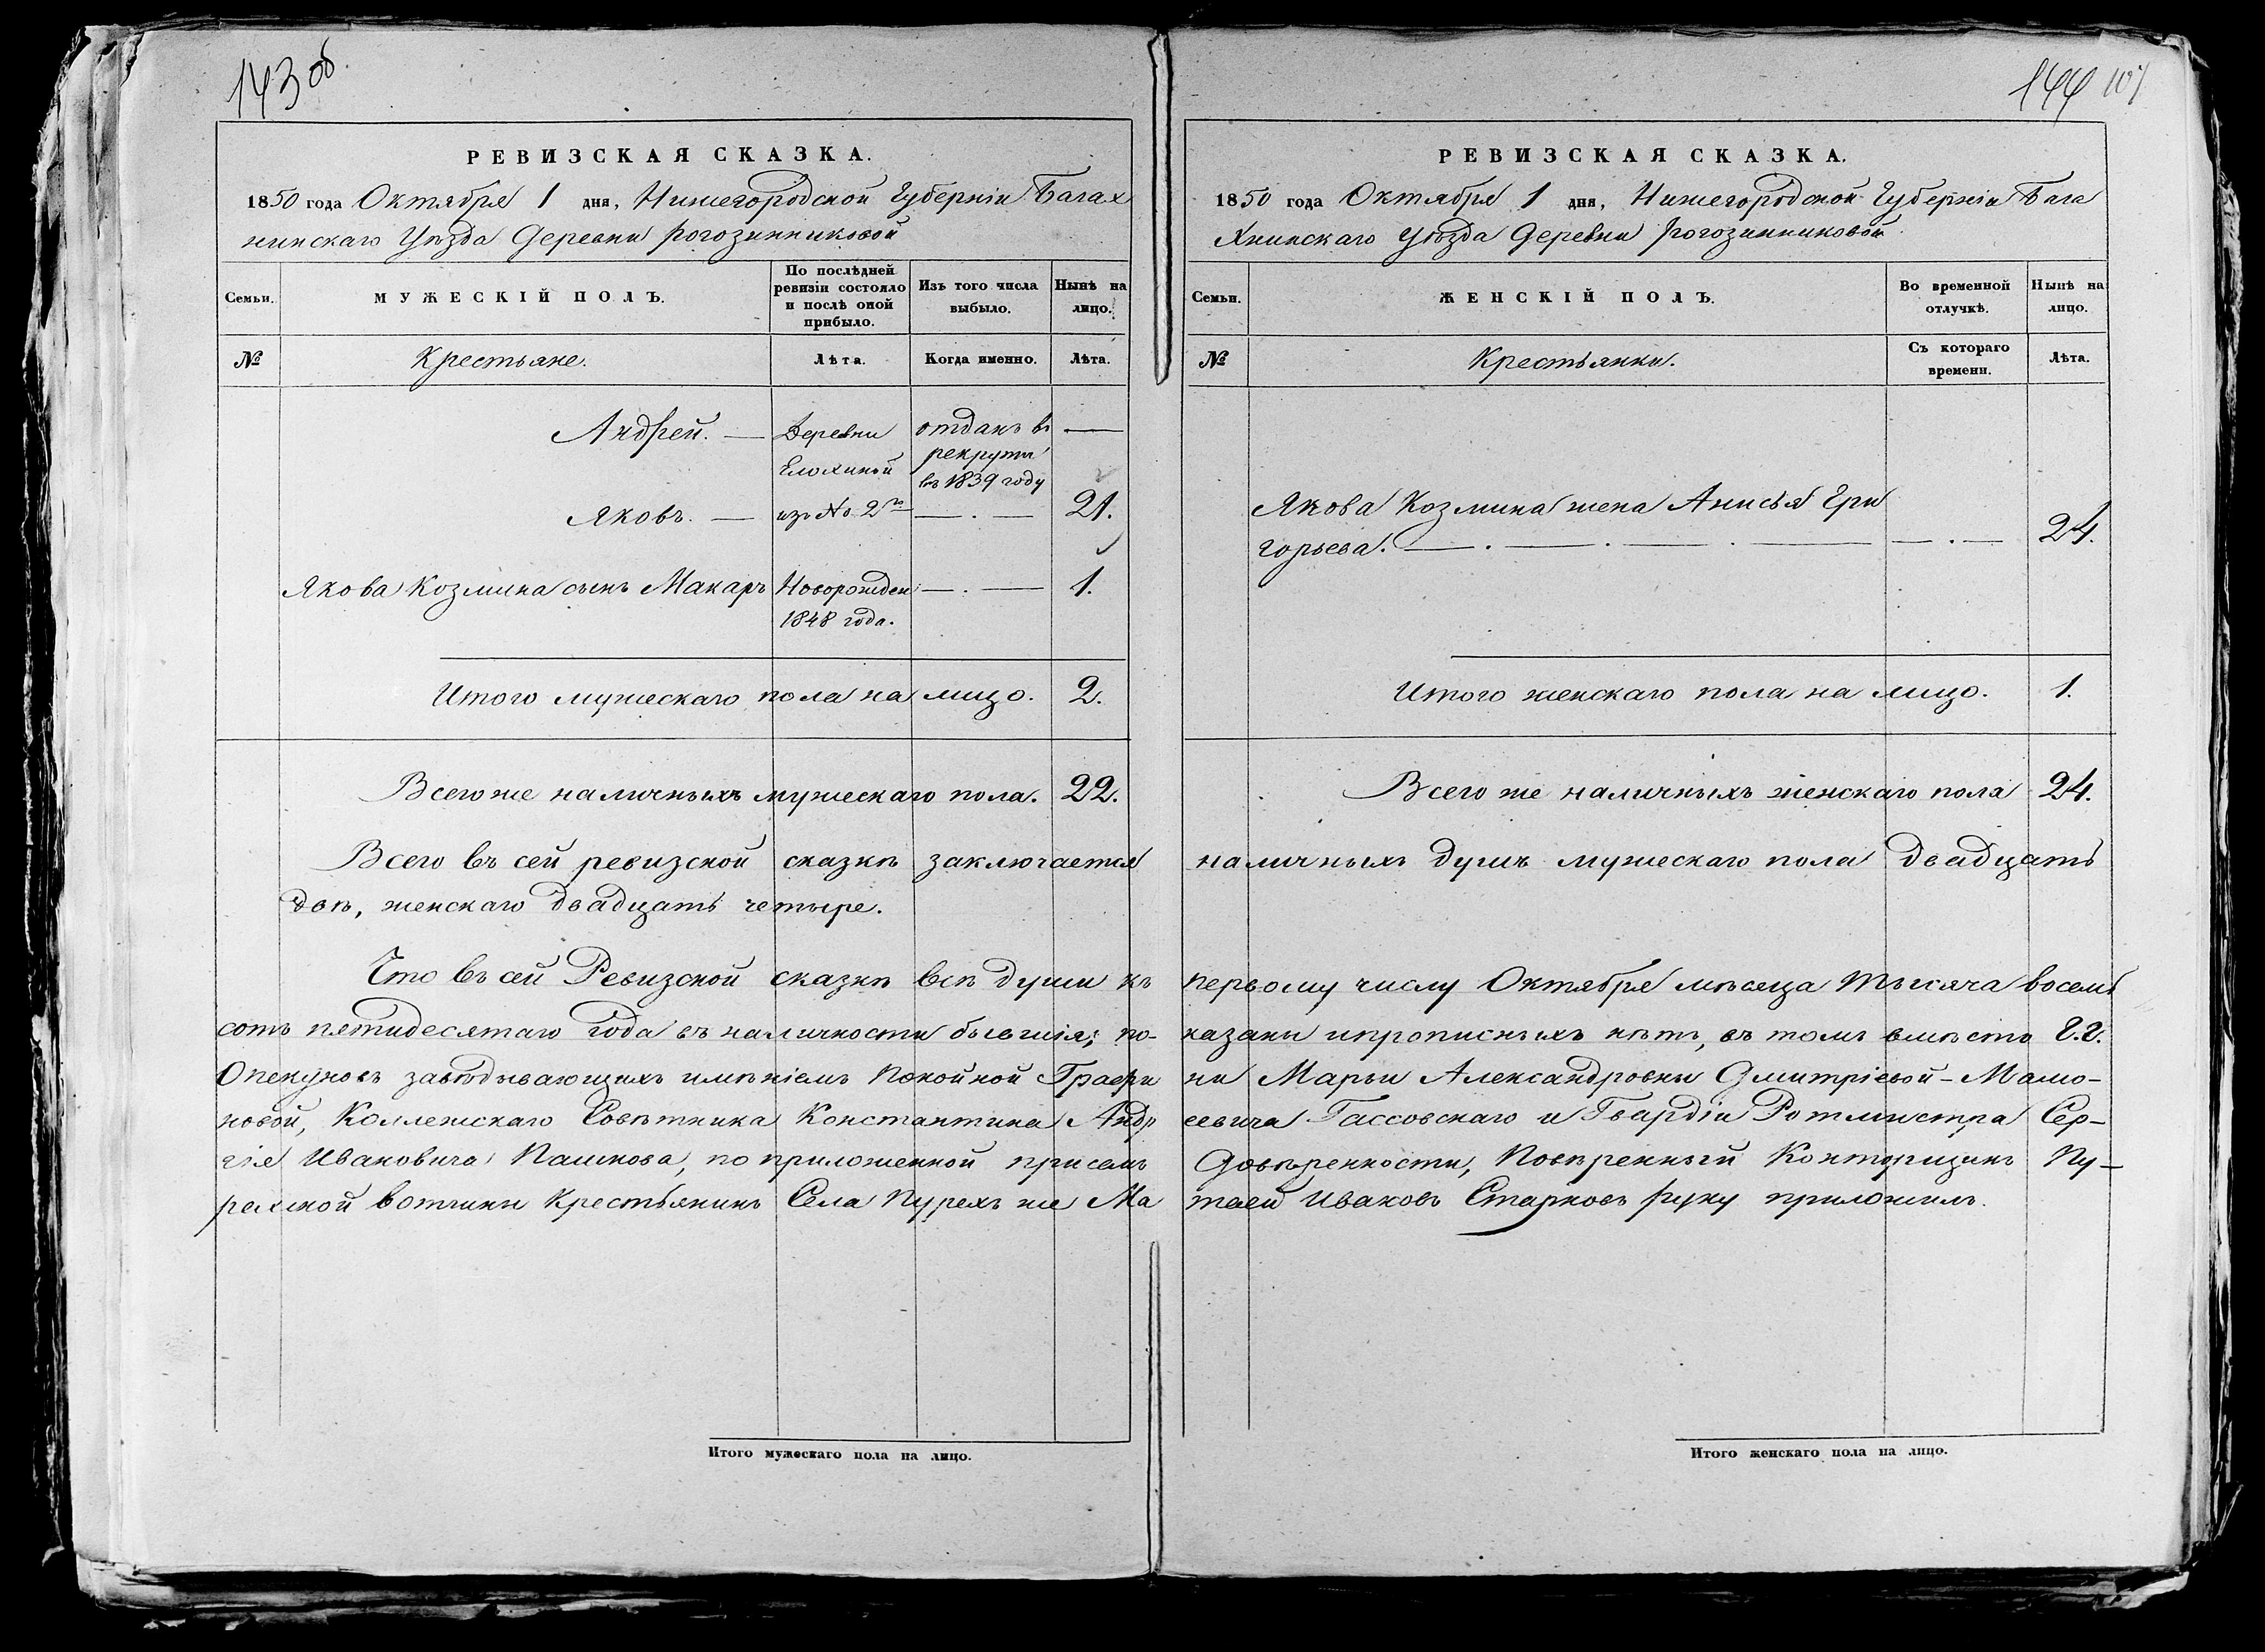 143 об
РЕВИЗСКАЯ СКАЗКА.
1850 года Октября 1 дня, Нижегородской Губерніи Балах
нинскаго Уѣзда Деревни Рогозинниковой
Семьи.
МУЖЕСКІЙ ПОЛЪ.
По послѣдней ревизіи состояло и послѣ оной прибыло.
Изъ того числа выбыло.
Нынѣ на лицо.
№
Крестьяне.
Лѣта.
Когда именно.
Лѣта.
Андрей. — Деревни отданъ въ —
Елохиной рекруты
въ 1839 году
Яковъ. — изъ № 2го — . — 21.
Якова Козмина сынъ Макаръ Новорожден — . — 1.
1848 года.
Итого мужескаго пола на лицо. 2.
Всего же наличныхъ мужескаго пола. 22.
144 107
РЕВИЗСКАЯ СКАЗКА.
1850 года Октября 1 дня, Нижегородской Губерніи Бала
хнинскаго Уѣзда Деревни Рогозинниковой
Семьи.
ЖЕНСКІЙ ПОЛЪ.
Во временной отлучкѣ.
Нынѣ на лицо.
№
Крестьянки.
Съ котораго времени.
Лѣта.
Якова Козмина жена Анисья Гри
горьева. — . — . — . — — . — 24.
Итого женскаго пола на лицо. 1.
Всего же наличныхъ женскаго пола 24.
Всего въ сей ревизской сказкѣ заключается наличныхъ душъ мужескаго пола двадцать
двѣ, женскаго двадцать четыре.
Что въ сей Ревизской сказкѣ всѣ души къ первому числу Октября мѣсяца тысяча восемь
сотъ пятидесятаго года въ наличности бывшія, по-казаны и прописныхъ нѣтъ, въ томъ вмѣсто Г.г.
Опекуновъ завѣдывающихъ имѣніемъ Покойной Графи ни Марьи Александровны Дмитріевой-Мамо-
новой, Коллежскаго Совѣтника Константина Андр еевича Гассовскаго и Гвардіи Ротмистра Сер-
гія Ивановича Пашкова, по приложенной при семъ Довѣренности, Повѣренный Конторщикъ Пу-
рехской вотчины Крестьянинъ Села Пурехъ же Ма твей Ивановъ Старковъ руку приложилъ.
Итого мужескаго пола на лицо.
Итого женскаго пола на лицо.